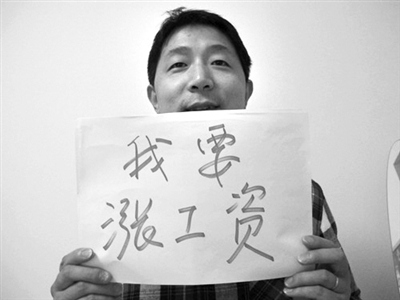 我要
涨工资